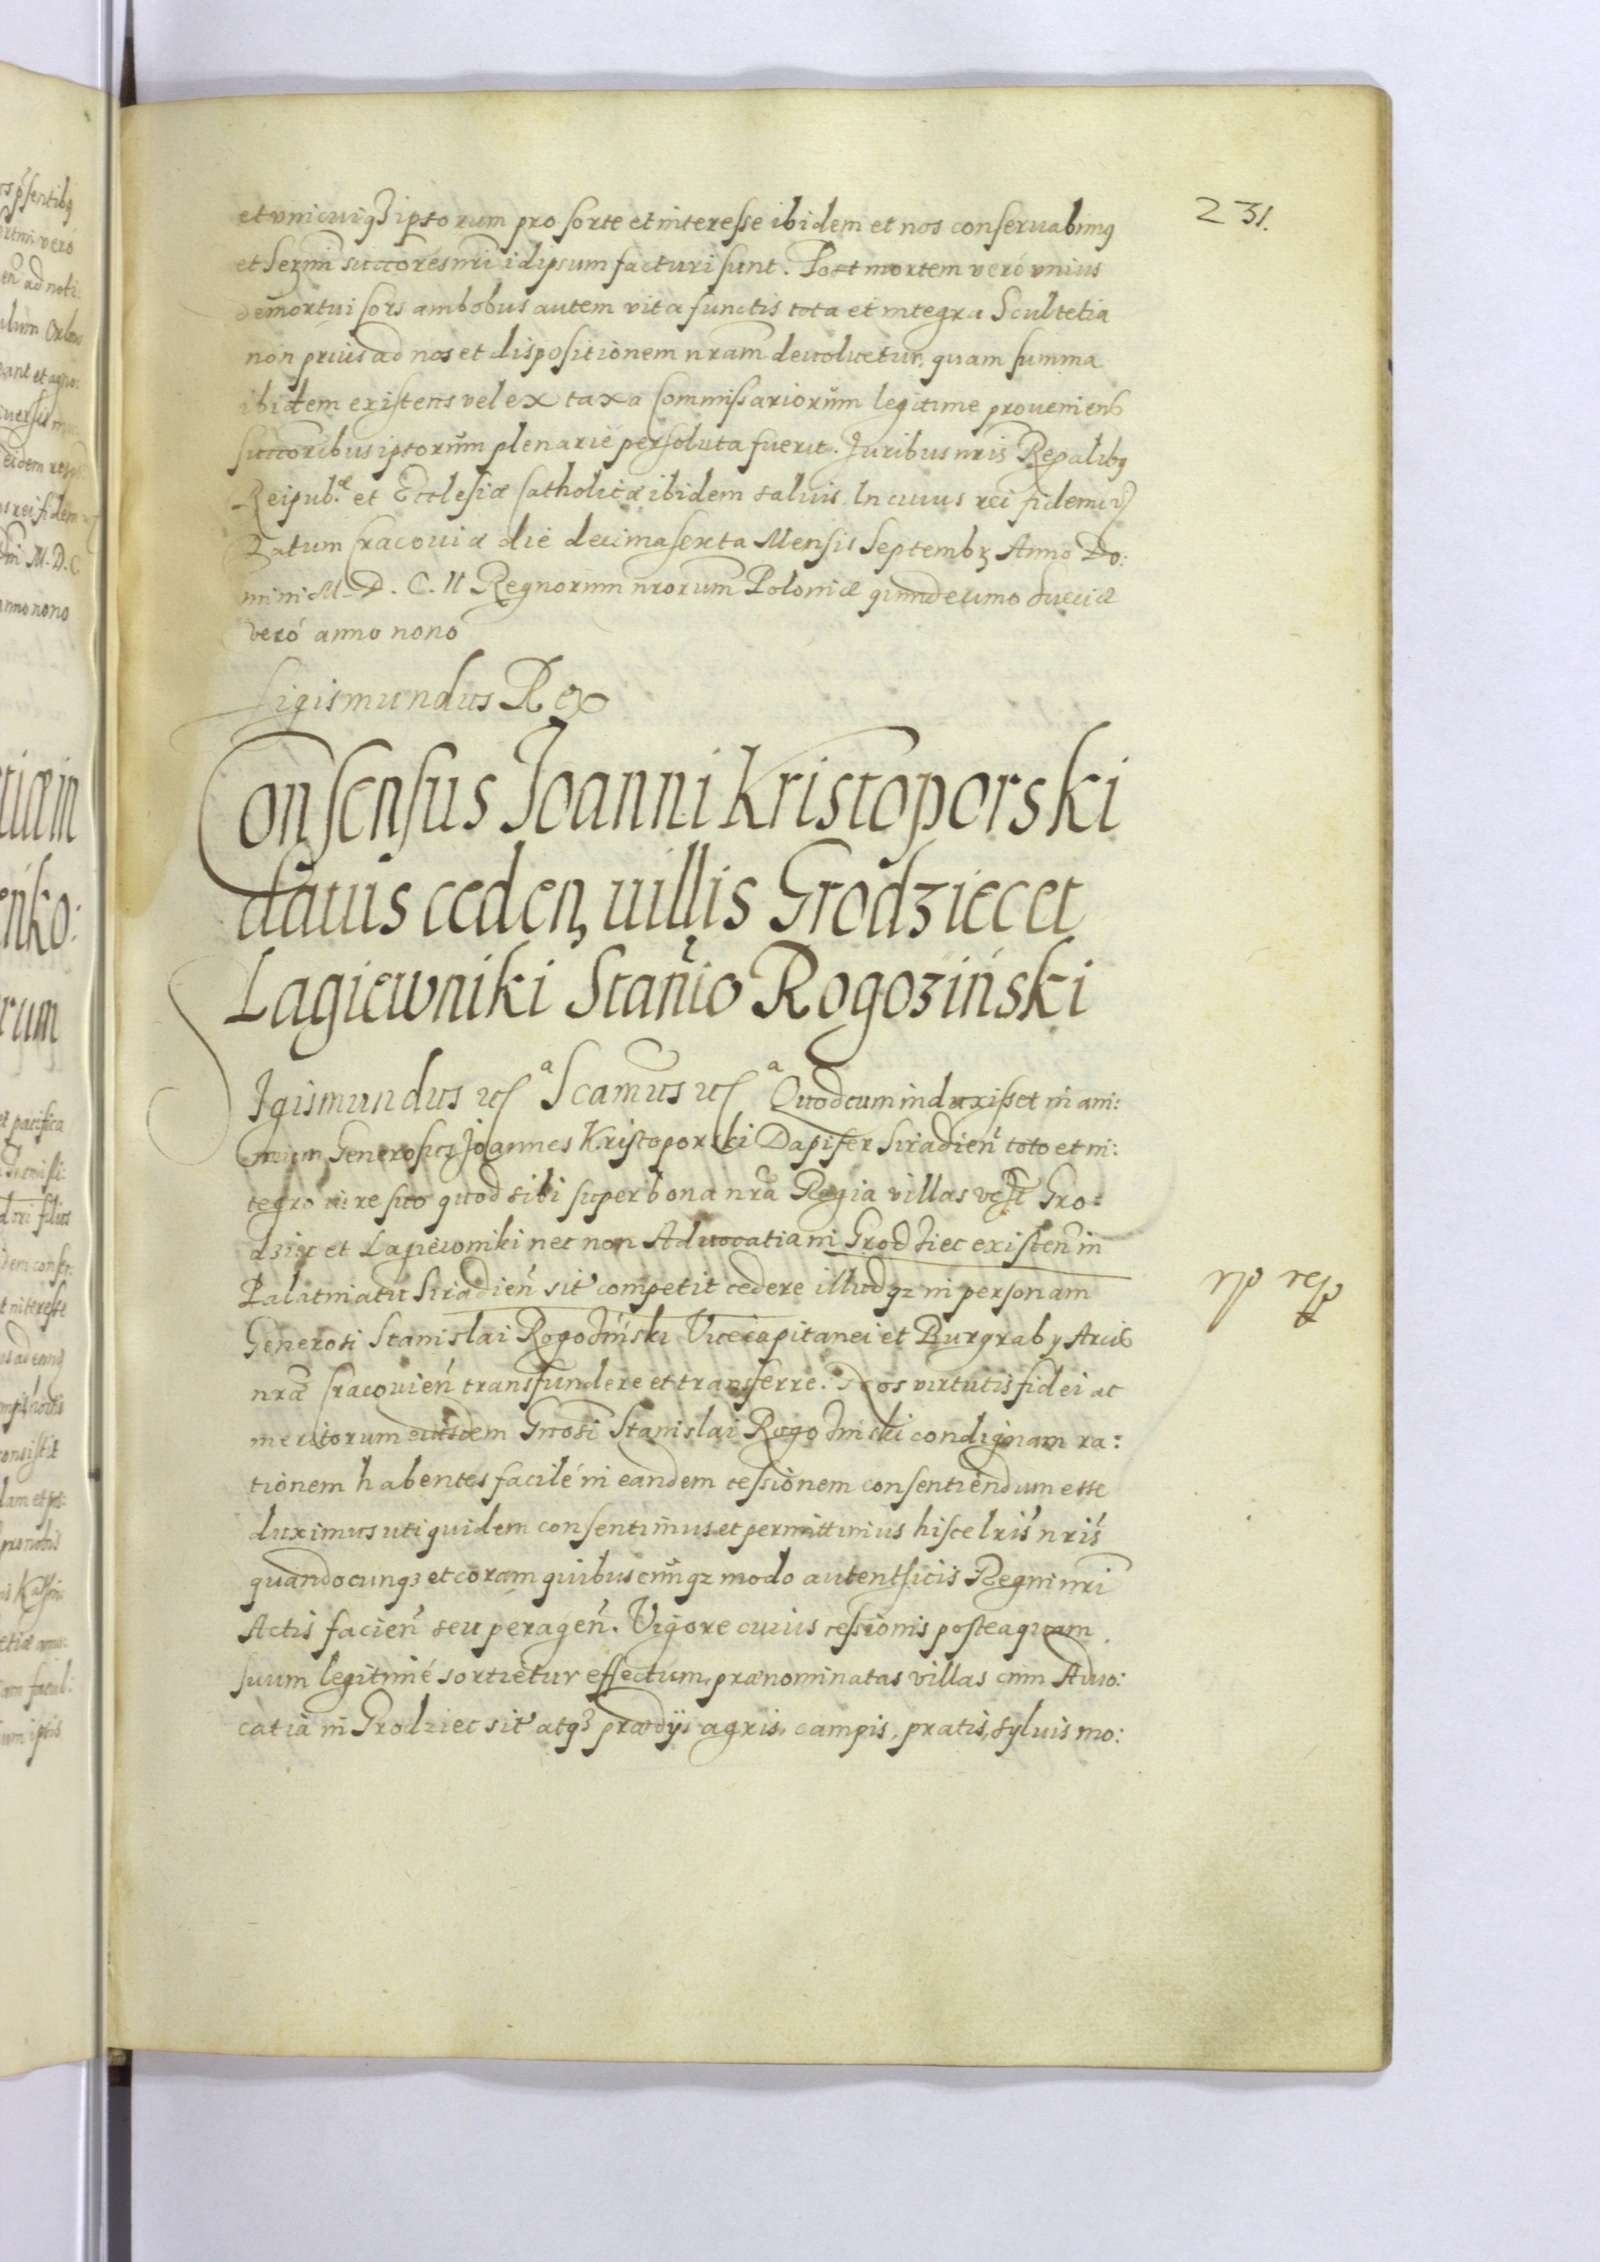 231.
et vnicuiqʒ ipsorum pro sorte et interesse ibidem et nos conseruabimꝯ
et Sermi succores nri idipsum facturi sunt. Post mortem veró vnius
demortui sors ambobus autem vita functis tota et integra Scultetia
non prius ad nos et dispositionem nram deuoluetur, quam summa
ibidem existens vel ex taxa Commissariorum legitime proueniens
succoribus ipsorum plenarie persoluta fuerit. Iuribus nris Regalibꝯ
Reipub. et Ecclesiæ Catholicæ ibidem saluis. In cuius rei fidem
Datum Cracouiæ die decimasexta Mensis Septembʒ Anno Do:
mini M. D. C. II Regnorum nrorum Poloniæ quindecimo Sueciæ
veró anno nono
Sigismundus Rex
Consensus Joanni Kristoporski
datus ceden, uillis Grodziec et
Lagiewniki Stanio Rogoziński
Sigismundus Scamus Quod cum induxisset in ani:
mum Generosus Joannes Kristoporski Dapifer Siradień toto et in:
tegro iure suo quod sibi super bona nra Regia villas Gro:
dziec et Lagiewniki nec non Aduocatiam Grodziec existen in
Palatinatu Siradień sit competit cedere illudqz in personam
Generosi Stanislai Rogoziński Vicecapitanei et Burgraby Arcis
nræ Cracouień transfundere et transferre. Nos virtutis fidei ac
meritorum eiusdem Gnosi Stanislai Rogoziński condignam ra:
tionem habentes facilé in eandem cessionem consentiendum esse
duximus uti quidem consentimus et permittimus hisce lris nris
quandocunqʒ et coram quibuscunqz modo autenthicis Regni nri
Actis facień seu peragen. Vigore cuius cessionis posteaquam
suum legitimé sortietur effectum, prænominatas villas cum Aduo:
catia in Grodziec sit atqʒ prædijs agris, campis, pratis, syluis mo: